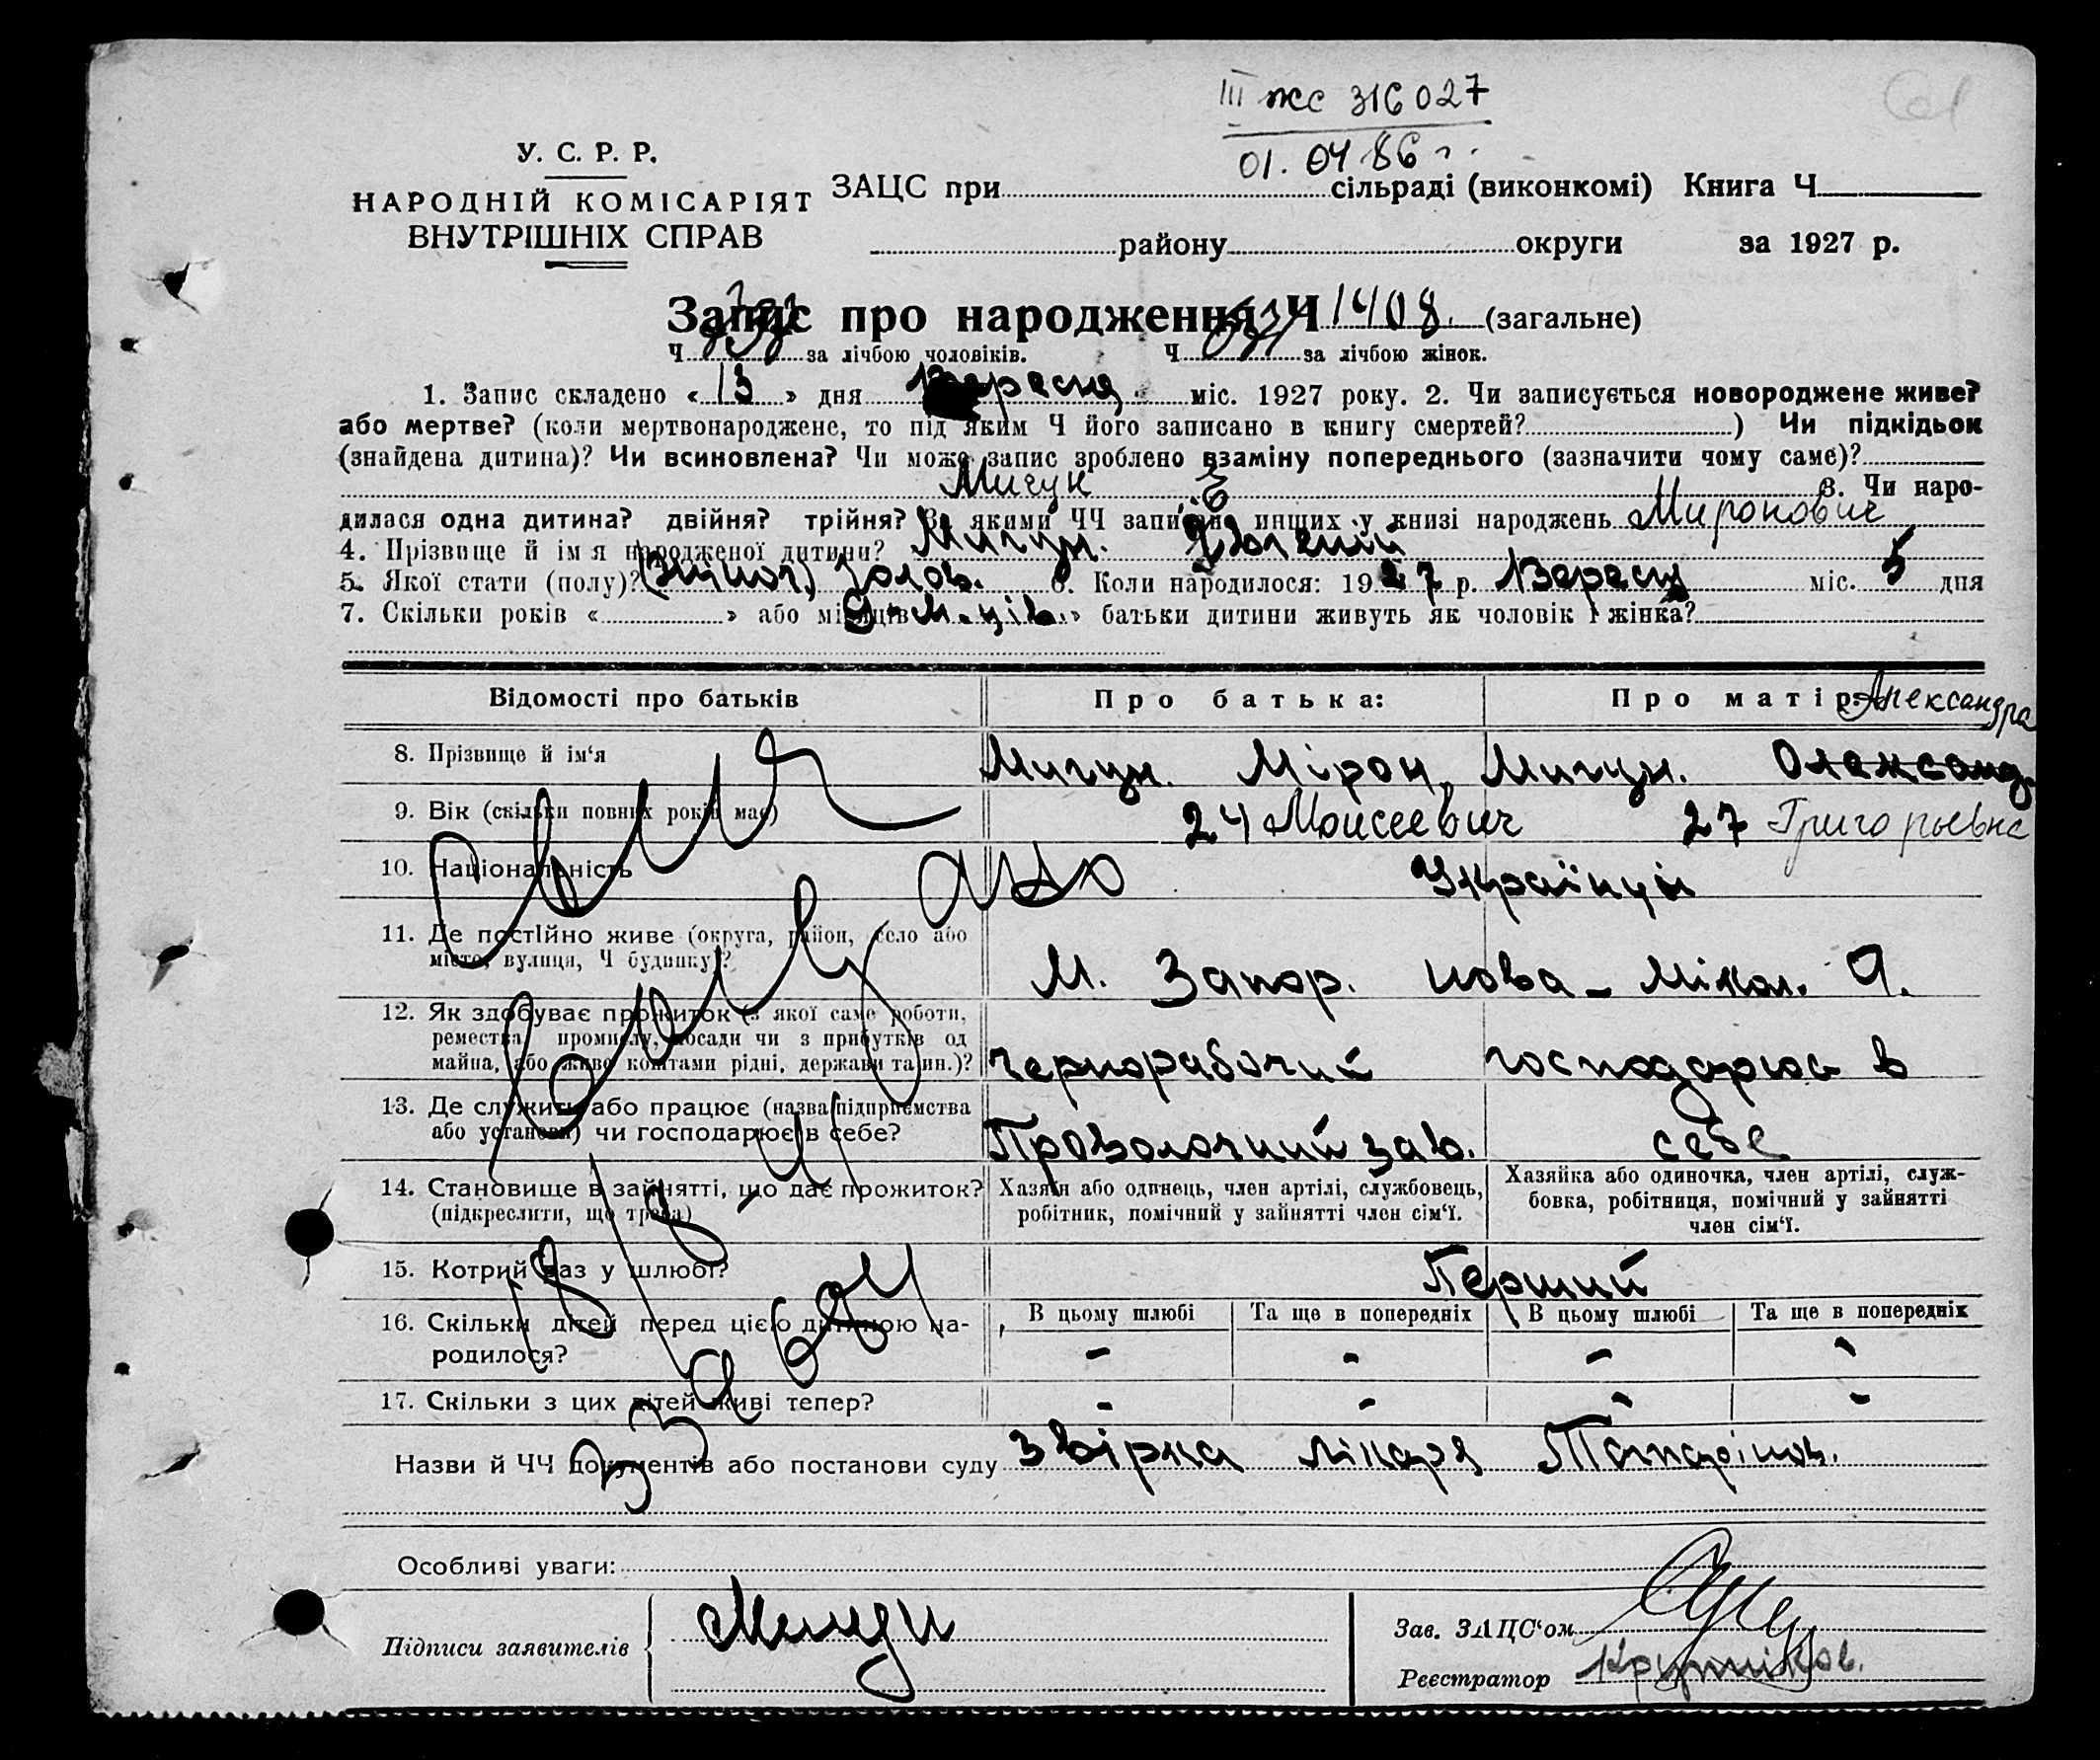 III жс 316027
01.04.86 г.
У. С. Р. Р.
НАРОДНІЙ КОМІСАРІЯТ
ВНУТРІШНІХ СПРАВ
ЗАЦС при сільраді (виконкомі) Книга Ч.
району округи за 1927 р.
Запис про народження Ч 1408. (загальне)
Ч за лічбою чоловіків. Ч за лічбою жінок.
1. Запис складено «13» дня Вересня міс. 1927 року. 2. Чи записується новороджене живе?
або мертве? (коли мертвонароджене, то під яким Ч його записано в книгу смертей? ) Чи підкідьок
(знайдена дитина)? Чи всиновлена? Чи може запис зроблено взаміну попереднього (зазначити чому саме)?
Мигун Е 3. Чи наро-
дилася одна дитина? двійня? трійня? За якими ЧЧ записано инших у книзі народжень Миронович
4. Прізвище й ім я народженої дитини? Мигун. Евгений
5. Якої стати (полу)? чолов. 6. Коли народилося: 1927 р. Вересня міс. 5 дня
7. Скільки років « » або місяців 9 м-ців.» батьки дитини живуть як чоловік і жінка?
Відомості про батьків Про батька: Про матір: Александра
8. Прізвище й ім'я Мигун. Мірон Мигун. Олександ.
9. Вік (скільки повних років має) 24 Моисеевич 27 Григорьевна
10. Національність Українці
11. Де постійно живе (округа, район, село або
місто, вулиця, Ч будинку)? М. Запор. Нова-Мікол. 9.
12. Як здобуває прожиток (з якої саме роботи,
ремества, промислу, посади чи з прибутків од
майна, або живе коштами рідні, держави та ин.)? чернорабочий господарює в
13. Де служить або працює (назва підприємства
або установи) чи господарює в себе? Проволочний зав. себе
14. Становище в зайнятті, що дає прожиток?
(підкреслити, що треба)
Хазяїн або одинець, член артілі, службовець,
робітник, помічний у зайнятті член сім'ї.
Хазяйка або одиночка, член артілі, служ-
бовка, робітниця, помічний у зайнятті
член сім'ї.
15. Котрий раз у шлюбі? Перший
16. Скільки дітей перед цією дитиною на-
родилося?
В цьому шлюбі Та ще в попередніх В цьому шлюбі Та ще в попередніх
- - - -
17. Скільки з цих дітей живі тепер? - - - -
Назви й ЧЧ документів або постанови суду звірка лікаря
Особливі уваги:
Підписи заявителів
Зав. ЗАЦС'ом
Реєстратор